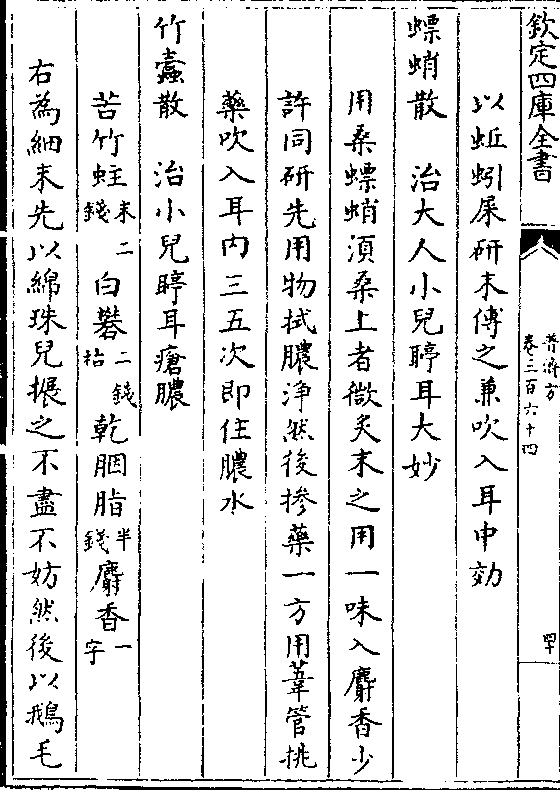 欽定四庫全書
普濟方
卷三百六十四
四十
以蚯蚓屎研末傅之兼吹入耳中効
螵蛸散　治大人小兒聤耳大妙
用桑螵蛸須桑上者微炙末之用一味入麝香少
許同研先用物拭膿淨然後摻藥一方用葦管挑
藥吹入耳內三五次即住膿水
竹蠹散　治小兒聤耳瘡膿
苦竹蛀末二錢 白礬二錢枯 乾胭脂半錢 麝香一字
右為細末先以綿珠兒搌之不盡不妨然後以鵝毛